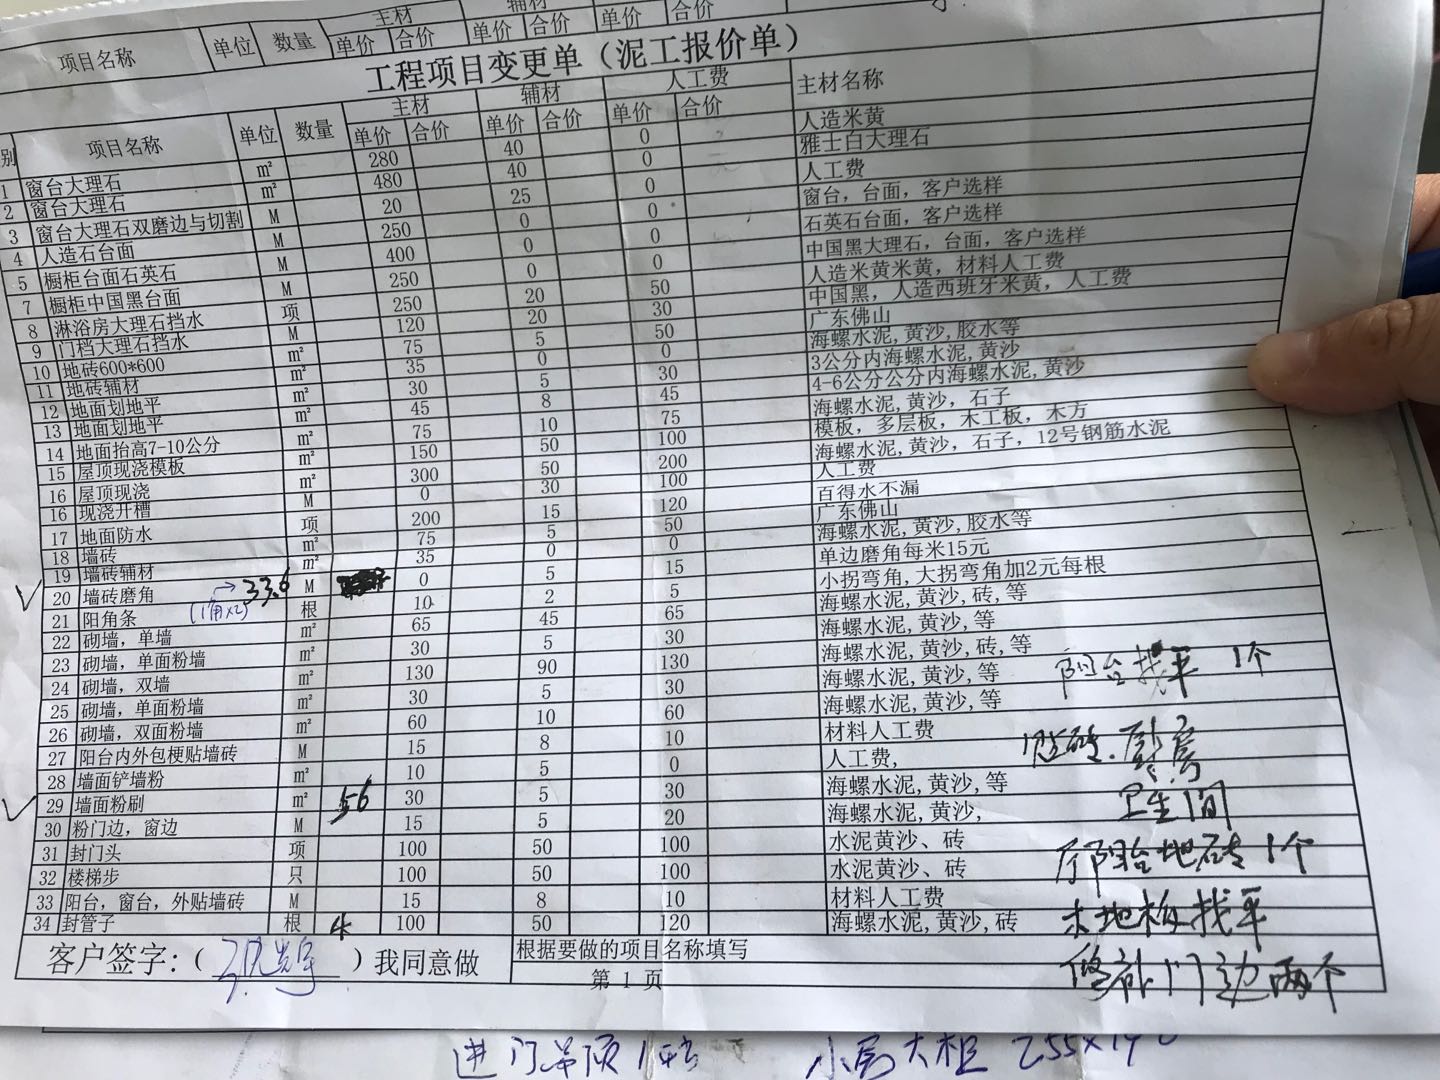 项目名称 单位 数量 主材 辅材
单价 合价 单价 合价 单价 合价
工程项目变更单（泥工报价单）
别 项目名称 单位 数量 主材 辅材 人工费 主材名称
单价 合价 单价 合价 单价 合价
1 窗台大理石 m² 280 40 0 人造米黄
2 窗台大理石 m² 480 40 0 雅士白大理石
3 窗台大理石双磨边与切割 M 20 25 0 人工费
4 人造石台面 M 250 0 0 窗台，台面，客户选样
5 橱柜台面石英石 M 400 0 0 石英石台面，客户选样
7 橱柜中国黑台面 M 250 0 0 中国黑大理石，台面，客户选样
8 淋浴房大理石挡水 项 250 20 50 人造米黄米黄，材料人工费
9 门档大理石挡水 M 120 20 30 中国黑，人造西班牙米黄，人工费
10 地砖600*600 m² 75 5 50 广东佛山
11 地砖辅材 m² 35 0 0 海螺水泥,黄沙,胶水等
12 地面划地平 m² 30 5 30 3公分内海螺水泥,黄沙
13 地面划地平 m² 45 8 45 4-6公分公分内海螺水泥,黄沙
14 地面抬高7-10公分 m² 75 10 75 海螺水泥,黄沙，石子
15 屋顶现浇模板 m² 150 50 100 模板，多层板，木工板，木方
16 屋顶现浇 m² 300 50 200 海螺水泥,黄沙，石子，12号钢筋水泥
16 现浇开槽 M 0 30 100 人工费
17 地面防水 项 200 15 120 百得水不漏
18 墙砖 m² 75 5 50 广东佛山
19 墙砖辅材 m² 35 0 0 海螺水泥,黄沙,胶水等
20 墙砖磨角 33.6 M 0 5 15 单边磨角每米15元
21 阳角条 (1角×2) 根 10 2 5 小拐弯角,大拐弯角加2元每根
22 砌墙，单墙 m² 65 45 65 海螺水泥,黄沙,砖,等
23 砌墙，单面粉墙 m² 30 5 30 海螺水泥,黄沙,等
24 砌墙，双墙 m² 130 90 130 海螺水泥,黄沙,砖,等
25 砌墙，单面粉墙 m² 30 5 30 海螺水泥,黄沙,等
26 砌墙，双面粉墙 m² 60 10 60 海螺水泥,黄沙,等
27 阳台内外包梗贴墙砖 M 15 8 10 材料人工费
28 墙面铲墙粉 m² 10 5 0 人工费,
29 墙面粉刷 m² 56 30 5 30 海螺水泥,黄沙,等
30 粉门边，窗边 M 15 5 20 海螺水泥,黄沙,
31 封门头 项 100 50 100 水泥黄沙、砖
32 楼梯步 只 100 50 100 水泥黄沙、砖
33 阳台，窗台，外贴墙砖 M 15 8 10 材料人工费
34 封管子 根 4 100 50 120 海螺水泥,黄沙,砖
阳台找平 1个
贴砖.厨房
卫生间
阳台地砖1个
木地板找平
修补门边两个
客户签字:( ) 我同意做 根据要做的项目名称填写
第 1 页
进门吊顶